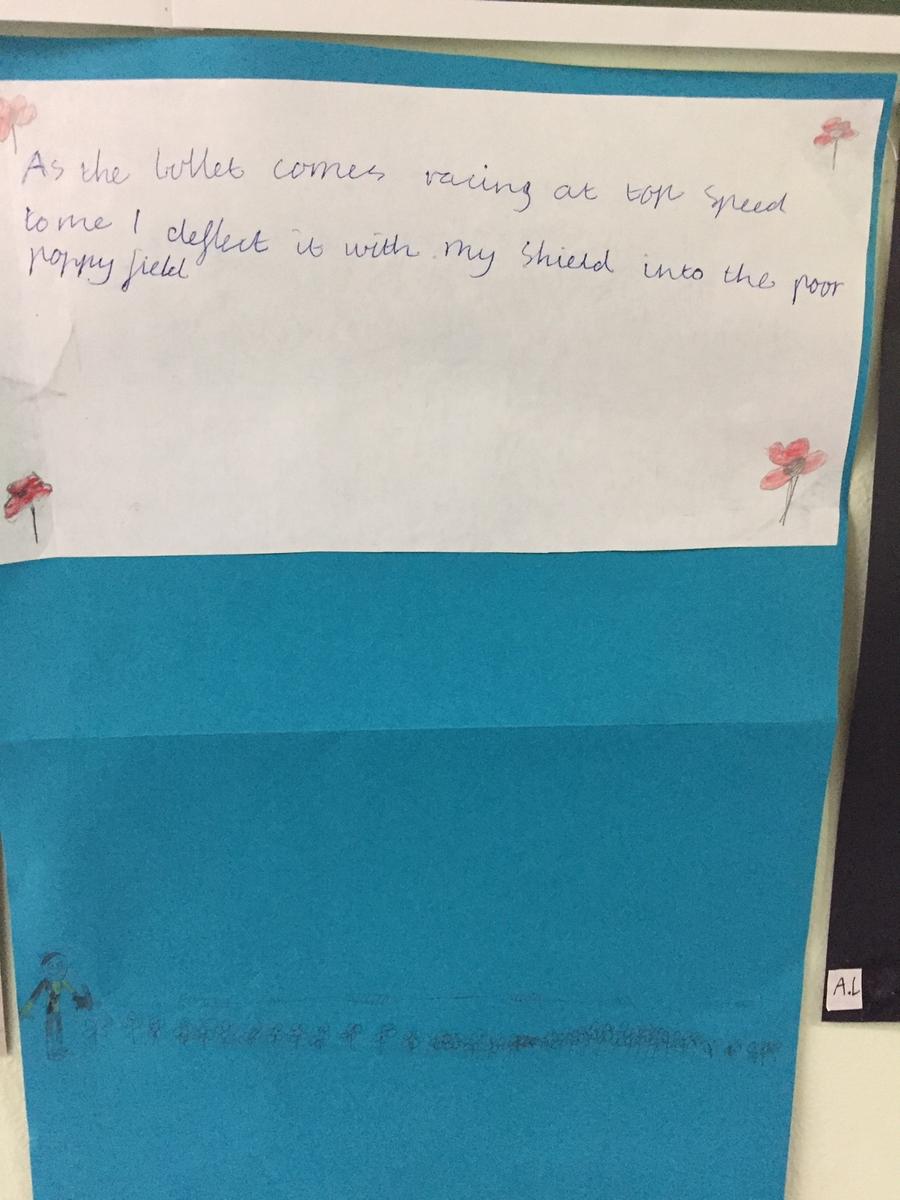 As the bullet comes racing at top speed
to me I deflect it with my shield into the poor
poppy field
A.L